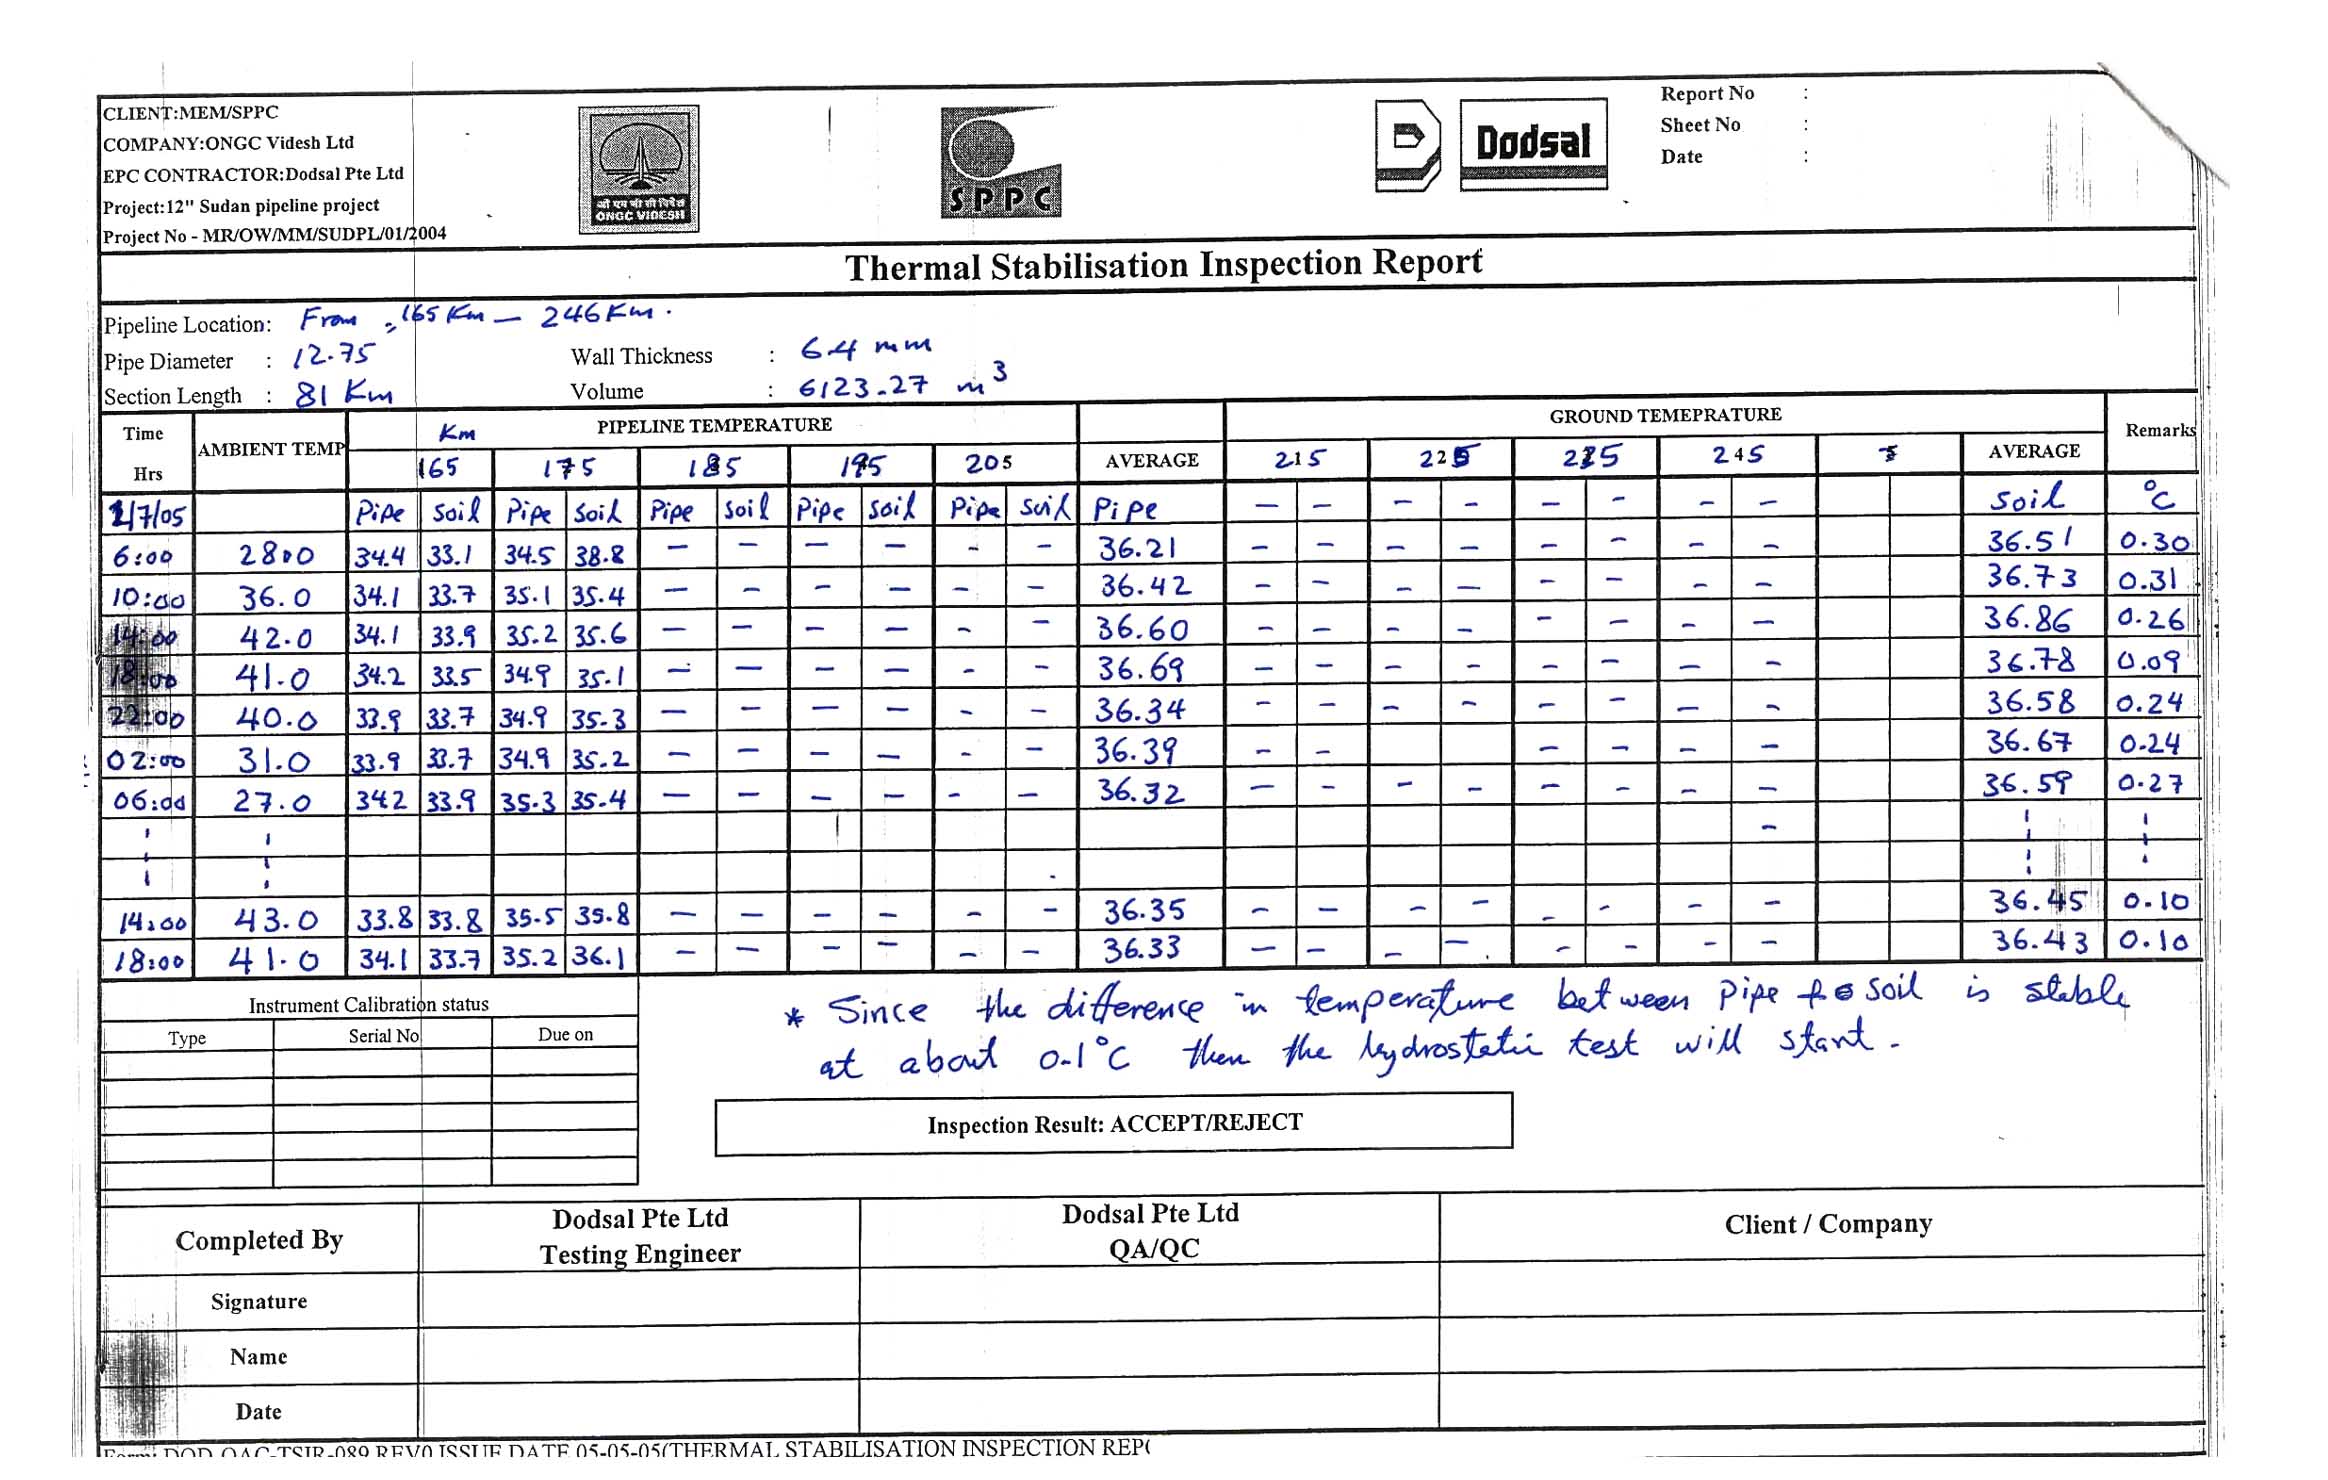 CLIENT:MEM/SPPC
COMPANY:ONGC Videsh Ltd
EPC CONTRACTOR:Dodsal Pte Ltd
Project:12" Sudan pipeline project
Project No - MR/OW/MM/SUDPL/01/2004
ओ एन जी सी विदेश
ONGC VIDESH
SPPC
Dodsal
Report No :
Sheet No :
Date :
Thermal Stabilisation Inspection Report
Pipeline Location: From 165 Km - 246 Km.
Pipe Diameter : 12.75 Wall Thickness : 6.4 mm
Section Length : 81 Km Volume : 6123.27 m³
Time Hrs AMBIENT TEMP Km PIPELINE TEMPERATURE GROUND TEMEPRATURE Remarks
165 175 185 195 205 AVERAGE 215 225 235 245 AVERAGE
1/7/05 Pipe Soil Pipe Soil Pipe Soil Pipe Soil Pipe Soil Pipe - - - - - - - - Soil °C
6:00 28.0 34.4 33.1 34.5 38.8 - - - - - - 36.21 - - - - - - - - 36.51 0.30
10:00 36.0 34.1 33.7 35.1 35.4 - - - - - - 36.42 - - - - - - - - 36.73 0.31
14:00 42.0 34.1 33.9 35.2 35.6 - - - - - - 36.60 - - - - - - - - 36.86 0.26
18:00 41.0 34.2 33.5 34.9 35.1 - - - - - - 36.69 - - - - - - - - 36.78 0.09
22:00 40.0 33.9 33.7 34.9 35.3 - - - - - - 36.34 - - - - - - - - 36.58 0.24
02:00 31.0 33.9 33.7 34.9 35.2 - - - - - - 36.39 - - - - - - 36.67 0.24
06:00 27.0 34.2 33.9 35.3 35.4 - - - - - - 36.32 - - - - - - - - 36.59 0.27
14:00 43.0 33.8 33.8 35.5 35.8 - - - - - - 36.35 - - - - - - - - 36.45 0.10
18:00 41.0 34.1 33.7 35.2 36.1 - - - - - - 36.33 - - - - - - - - 36.43 0.10
Instrument Calibration status
Type Serial No Due on
* Since the difference in temperature between pipe & soil is stable
at about 0.1°C then the hydrostatic test will start.
Inspection Result: ACCEPT/REJECT
Completed By
Dodsal Pte Ltd
Testing Engineer
Dodsal Pte Ltd
QA/QC
Client / Company
Signature
Name
Date
Form: DOD-QAC-TSIR-089 REV0 ISSUE DATE 05-05-05(THERMAL STABILISATION INSPECTION REP